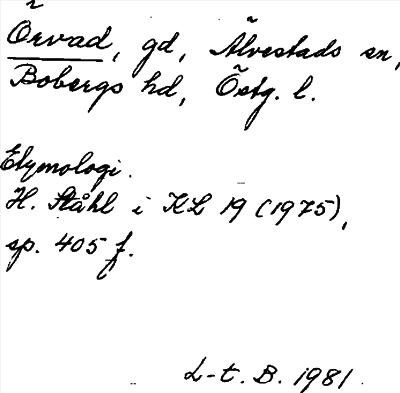 Örvad, gd, Älvestads sn,
Bobergs hd, Östg. l.
Etymologi.
H. Ståhl i KL 19 (1975),
sp. 405 f.
L-t. B. 1981.